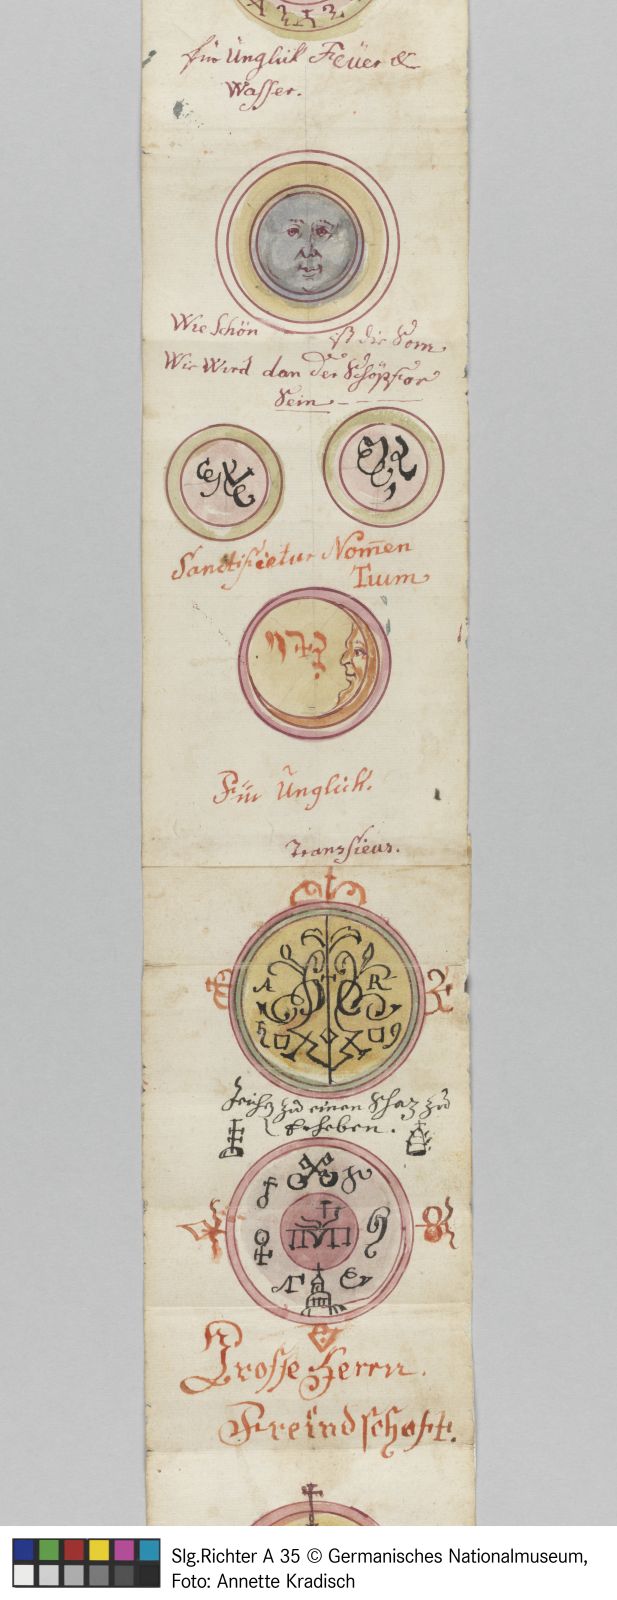 für Ünglük Feüer &
Wasser.
Wie Schön ist die Sonn
Wie Wird dan Der Schöpfer
Sein
Sanctificetur Nom̅en
Tuum
Für Ünglick.
Transsieus.
A R
Zeichen zu einen Schaz zu
Erheben.
Grosse Herrn.
Freindschaft.
Slg.Richter A 35 © Germanisches Nationalmuseum,
Foto: Annette Kradisch